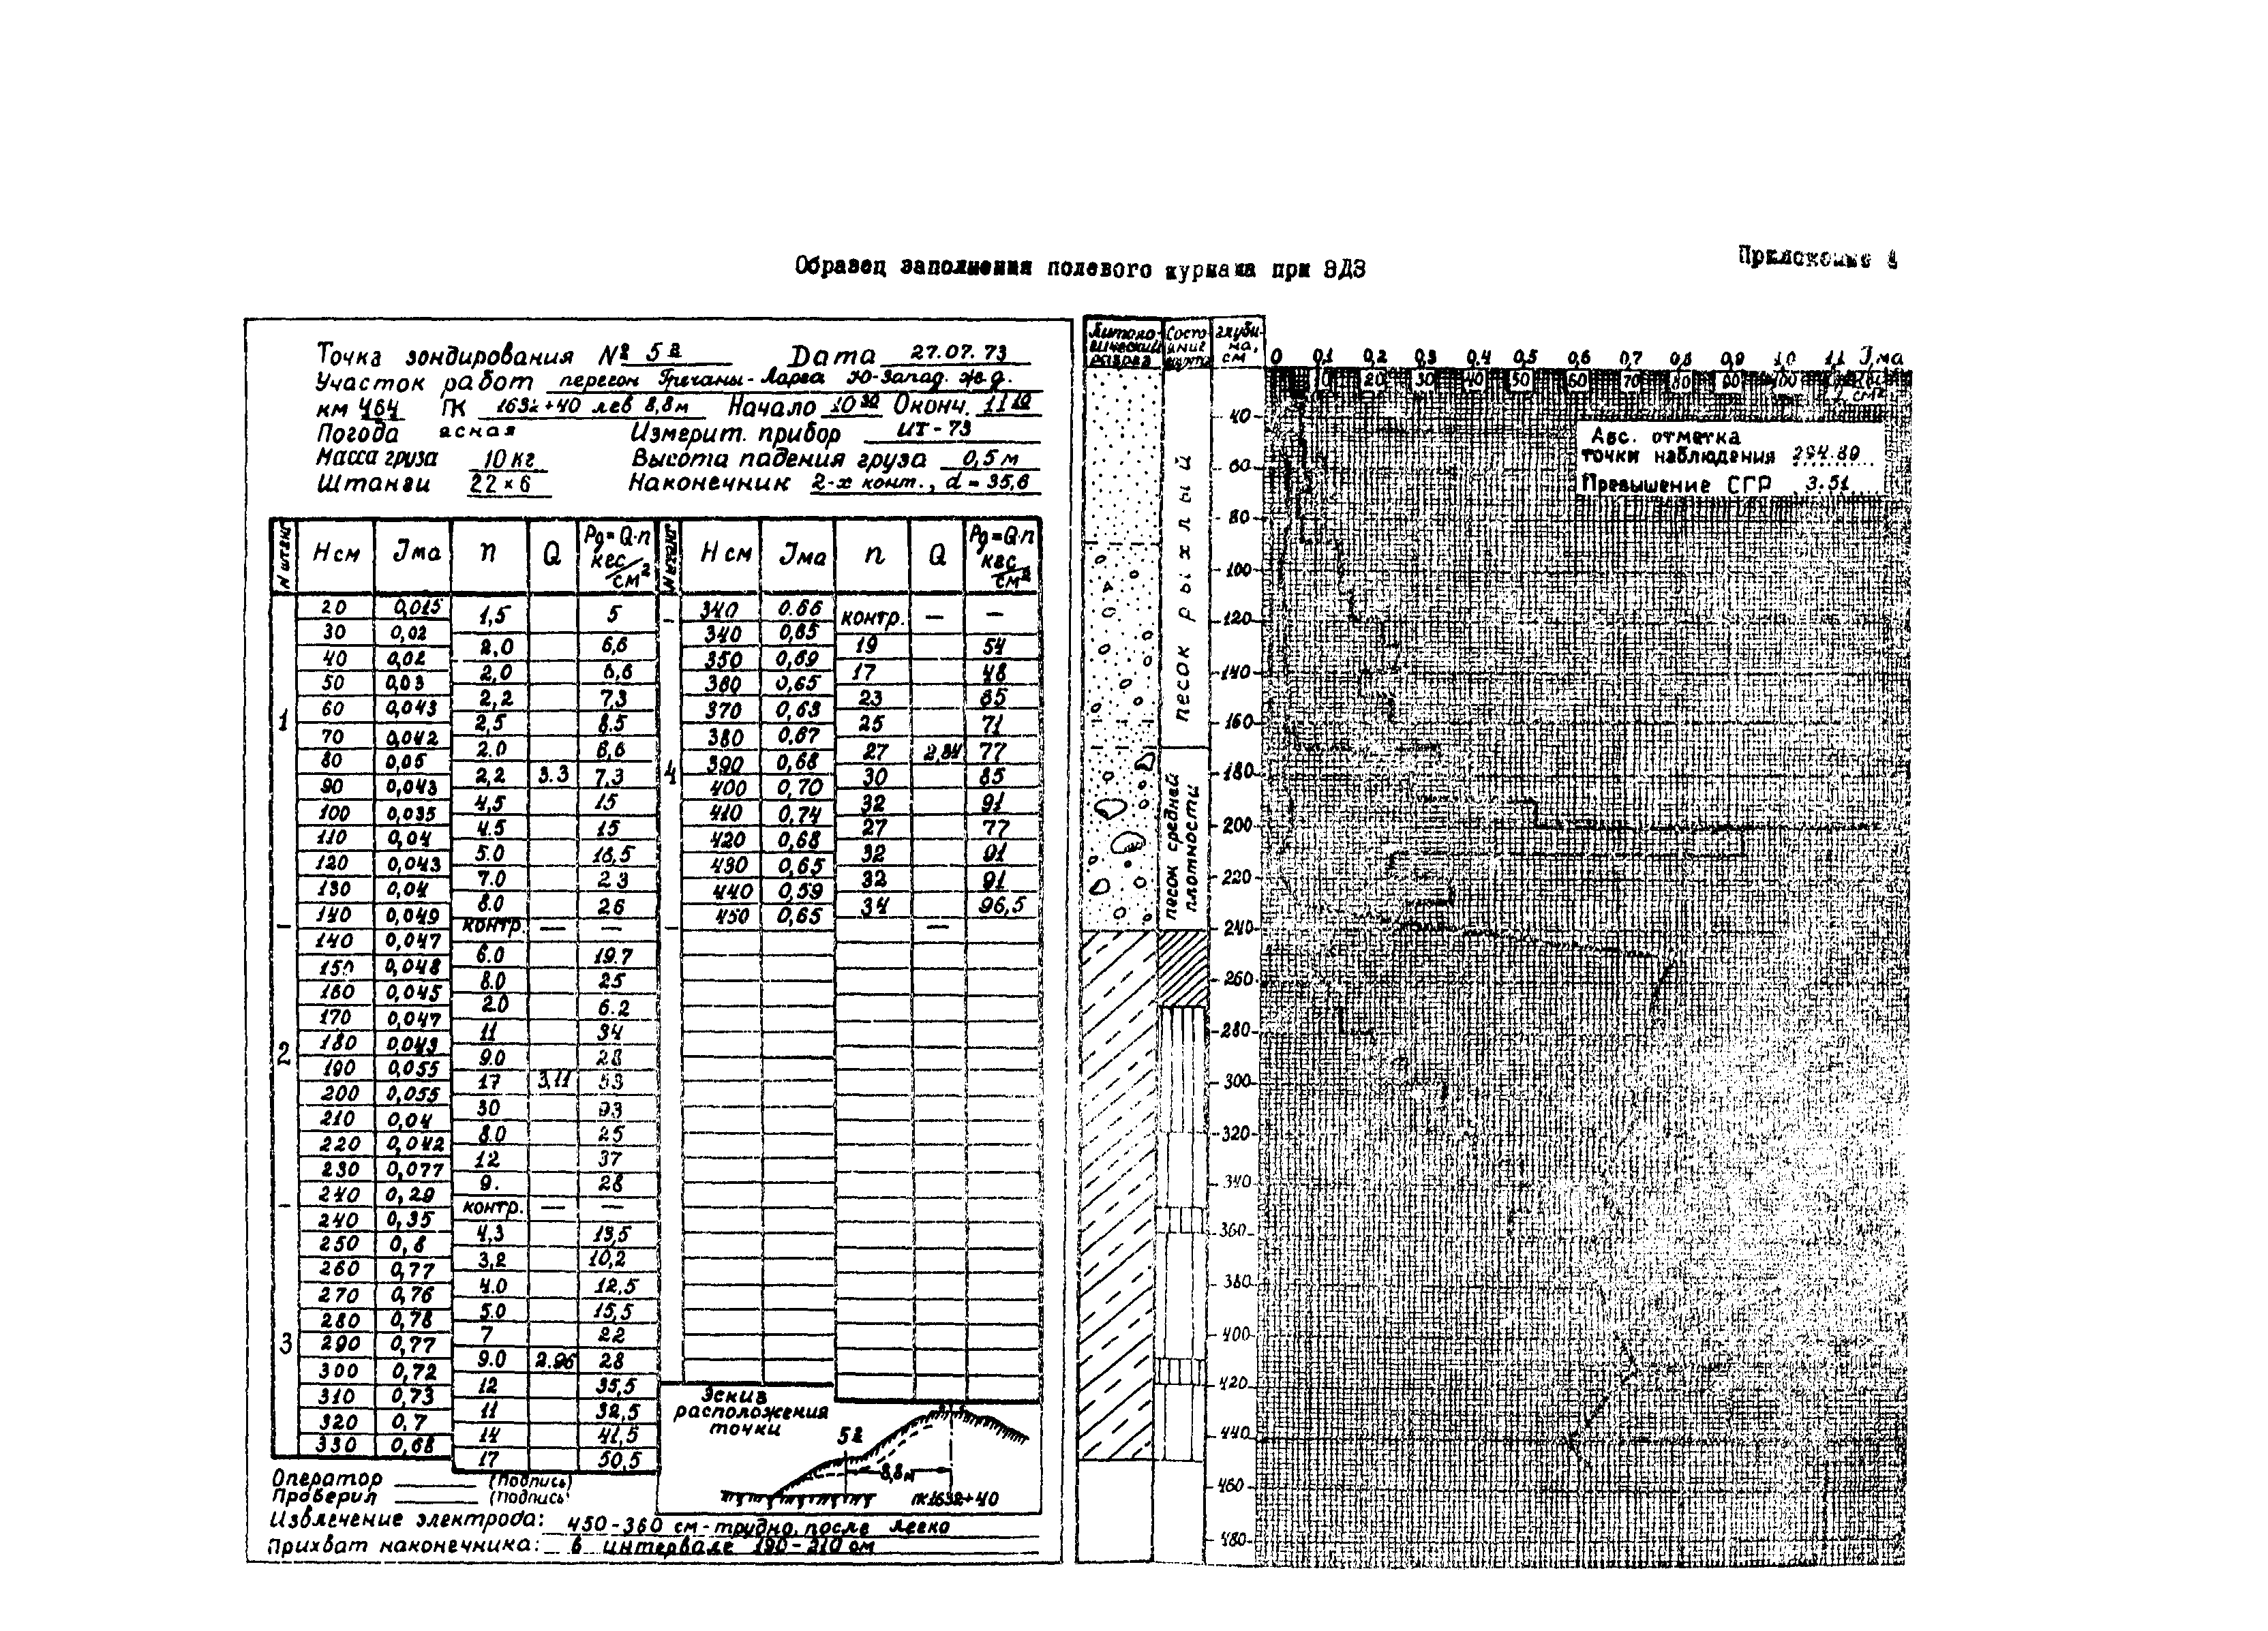 Приложение
Образец заполнения полевого журнала при ЭДЗ
Точка зондирования № 5а Дата 27.07.73
Участок работ перегон Гречаны - Ларга Ю-Запад. ж.д.
км 464 ПК 1632+40 лев 8,8м Начало 10 30 Оконч. 11
Погода ясная Измерит. прибор ИТ-73
Масса груза 10 кг Высота падения груза 0,5 м
Штанги 22×6 Наконечник 2-х конт., d = 35,6
N штанг Н см Jма n Q Pд=Q·n кгс/см² N штанг Н см Jма n Q Pд=Q·n кгс/см²
20 0,015 1,5 5 340 0.66 контр. — —
30 0,02 2,0 6,6 340 0,65 19 54
40 0,02 2,0 6,6 350 0,69 17 48
50 0,03 2,2 7,3 360 0,65 23 65
1 60 0,043 2,5 8.5 370 0,63 25 71
70 0,042 2.0 6,6 380 0,67 27 2,84 77
80 0,05 2,2 3.3 7,3 4 390 0,68 30 85
90 0,043 4,5 15 400 0,70 32 91
100 0,035 4.5 15 410 0,74 27 77
110 0,04 5.0 16,5 420 0,68 32 91
120 0,043 7.0 23 430 0,65 32 91
130 0,04 8.0 26 440 0,59 34 96,5
140 0,049 контр. — — 450 0,65 —
140 0,047 6.0 19.7
150 0,048 8.0 25
160 0,045 2.0 6.2
170 0,047 11 34
2 180 0,043 9.0 28
190 0,055 17 3,11 53
200 0,055 30 93
210 0,04 8.0 25
220 0,042 12 37
230 0,077 9. 28
240 0,29 контр. — —
240 0,35 4,3 13,5
250 0,8 3,2 10,2
260 0,77 4.0 12,5
270 0,76 5.0 15,5
280 0,78 7 22
3 290 0,77 9.0 2.96 28
300 0,72 12 35,5
310 0,73 11 32,5
320 0,7 14 41,5
330 0,68 17 50,5
Эскиз
расположения
точки
5а
8,8м
ПК1632+40
Оператор (подпись)
Проверил (подпись)
Извлечение электрода: 450-360 см - трудно, после легко
Прихват наконечника: в интервале 190-210 см
Литологический разрез
Состояние грунта
глубина, см
0 0,1 0,2 0,3 0,4 0,5 0,6 0,7 0,8 0,9 1.0 1.1 Jма
20 30 40 50 60 70 80 90 100
Абс. отметка
точки наблюдения 294.80
Превышение СГР 3.51
песок рыхлый
песок средней
плотности
40
60
80
100
120
140
160
180
200
220
240
260
280
300
320
340
360
380
400
420
440
460
480